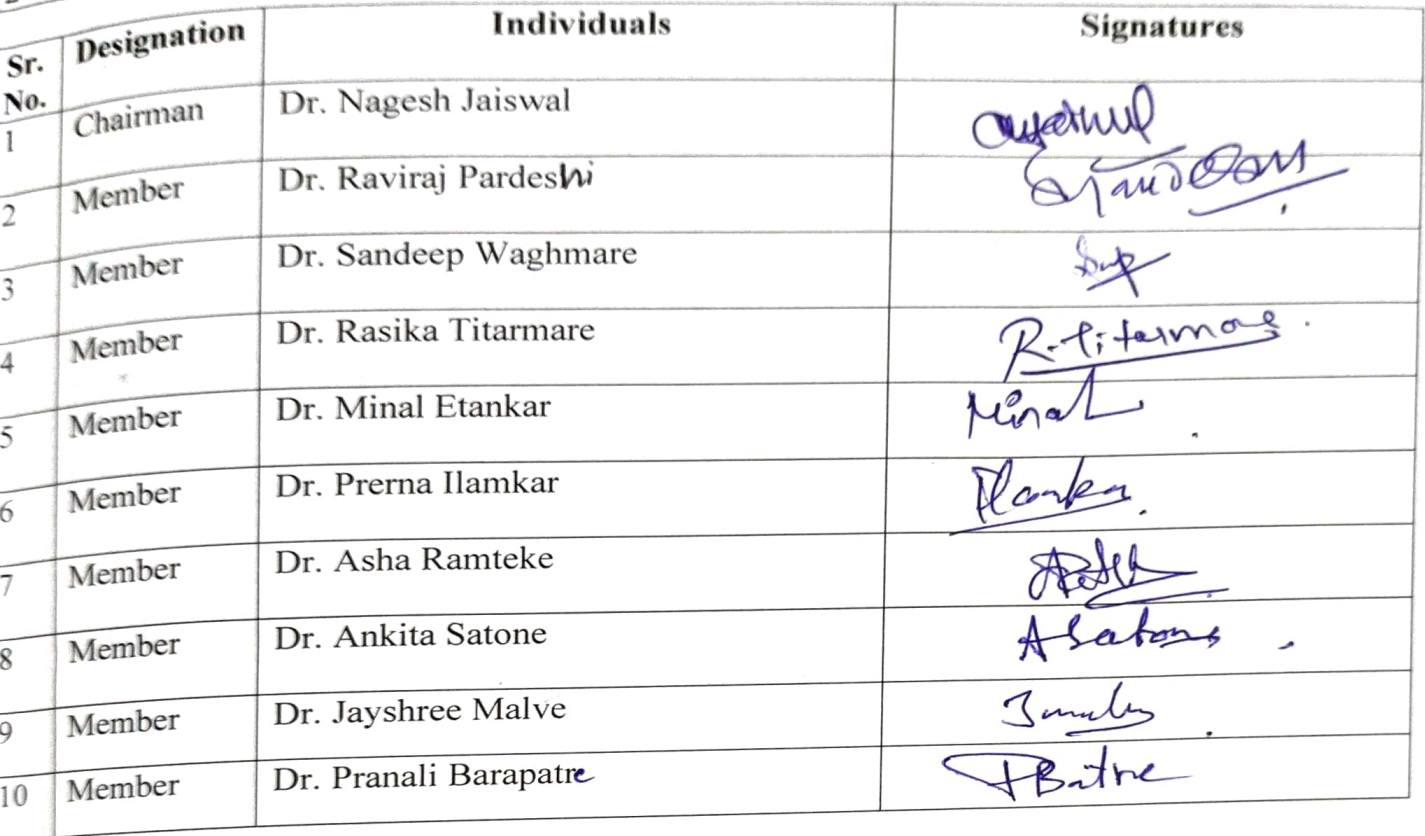 Sr. No. Designation Individuals Signatures
1 Chairman Dr. Nagesh Jaiswal
2 Member Dr. Raviraj Pardeshi
3 Member Dr. Sandeep Waghmare
4 Member Dr. Rasika Titarmare R. Titarmare
5 Member Dr. Minal Etankar Minal
6 Member Dr. Prerna Ilamkar
7 Member Dr. Asha Ramteke
8 Member Dr. Ankita Satone ASatone
9 Member Dr. Jayshree Malve
10 Member Dr. Pranali Barapatre